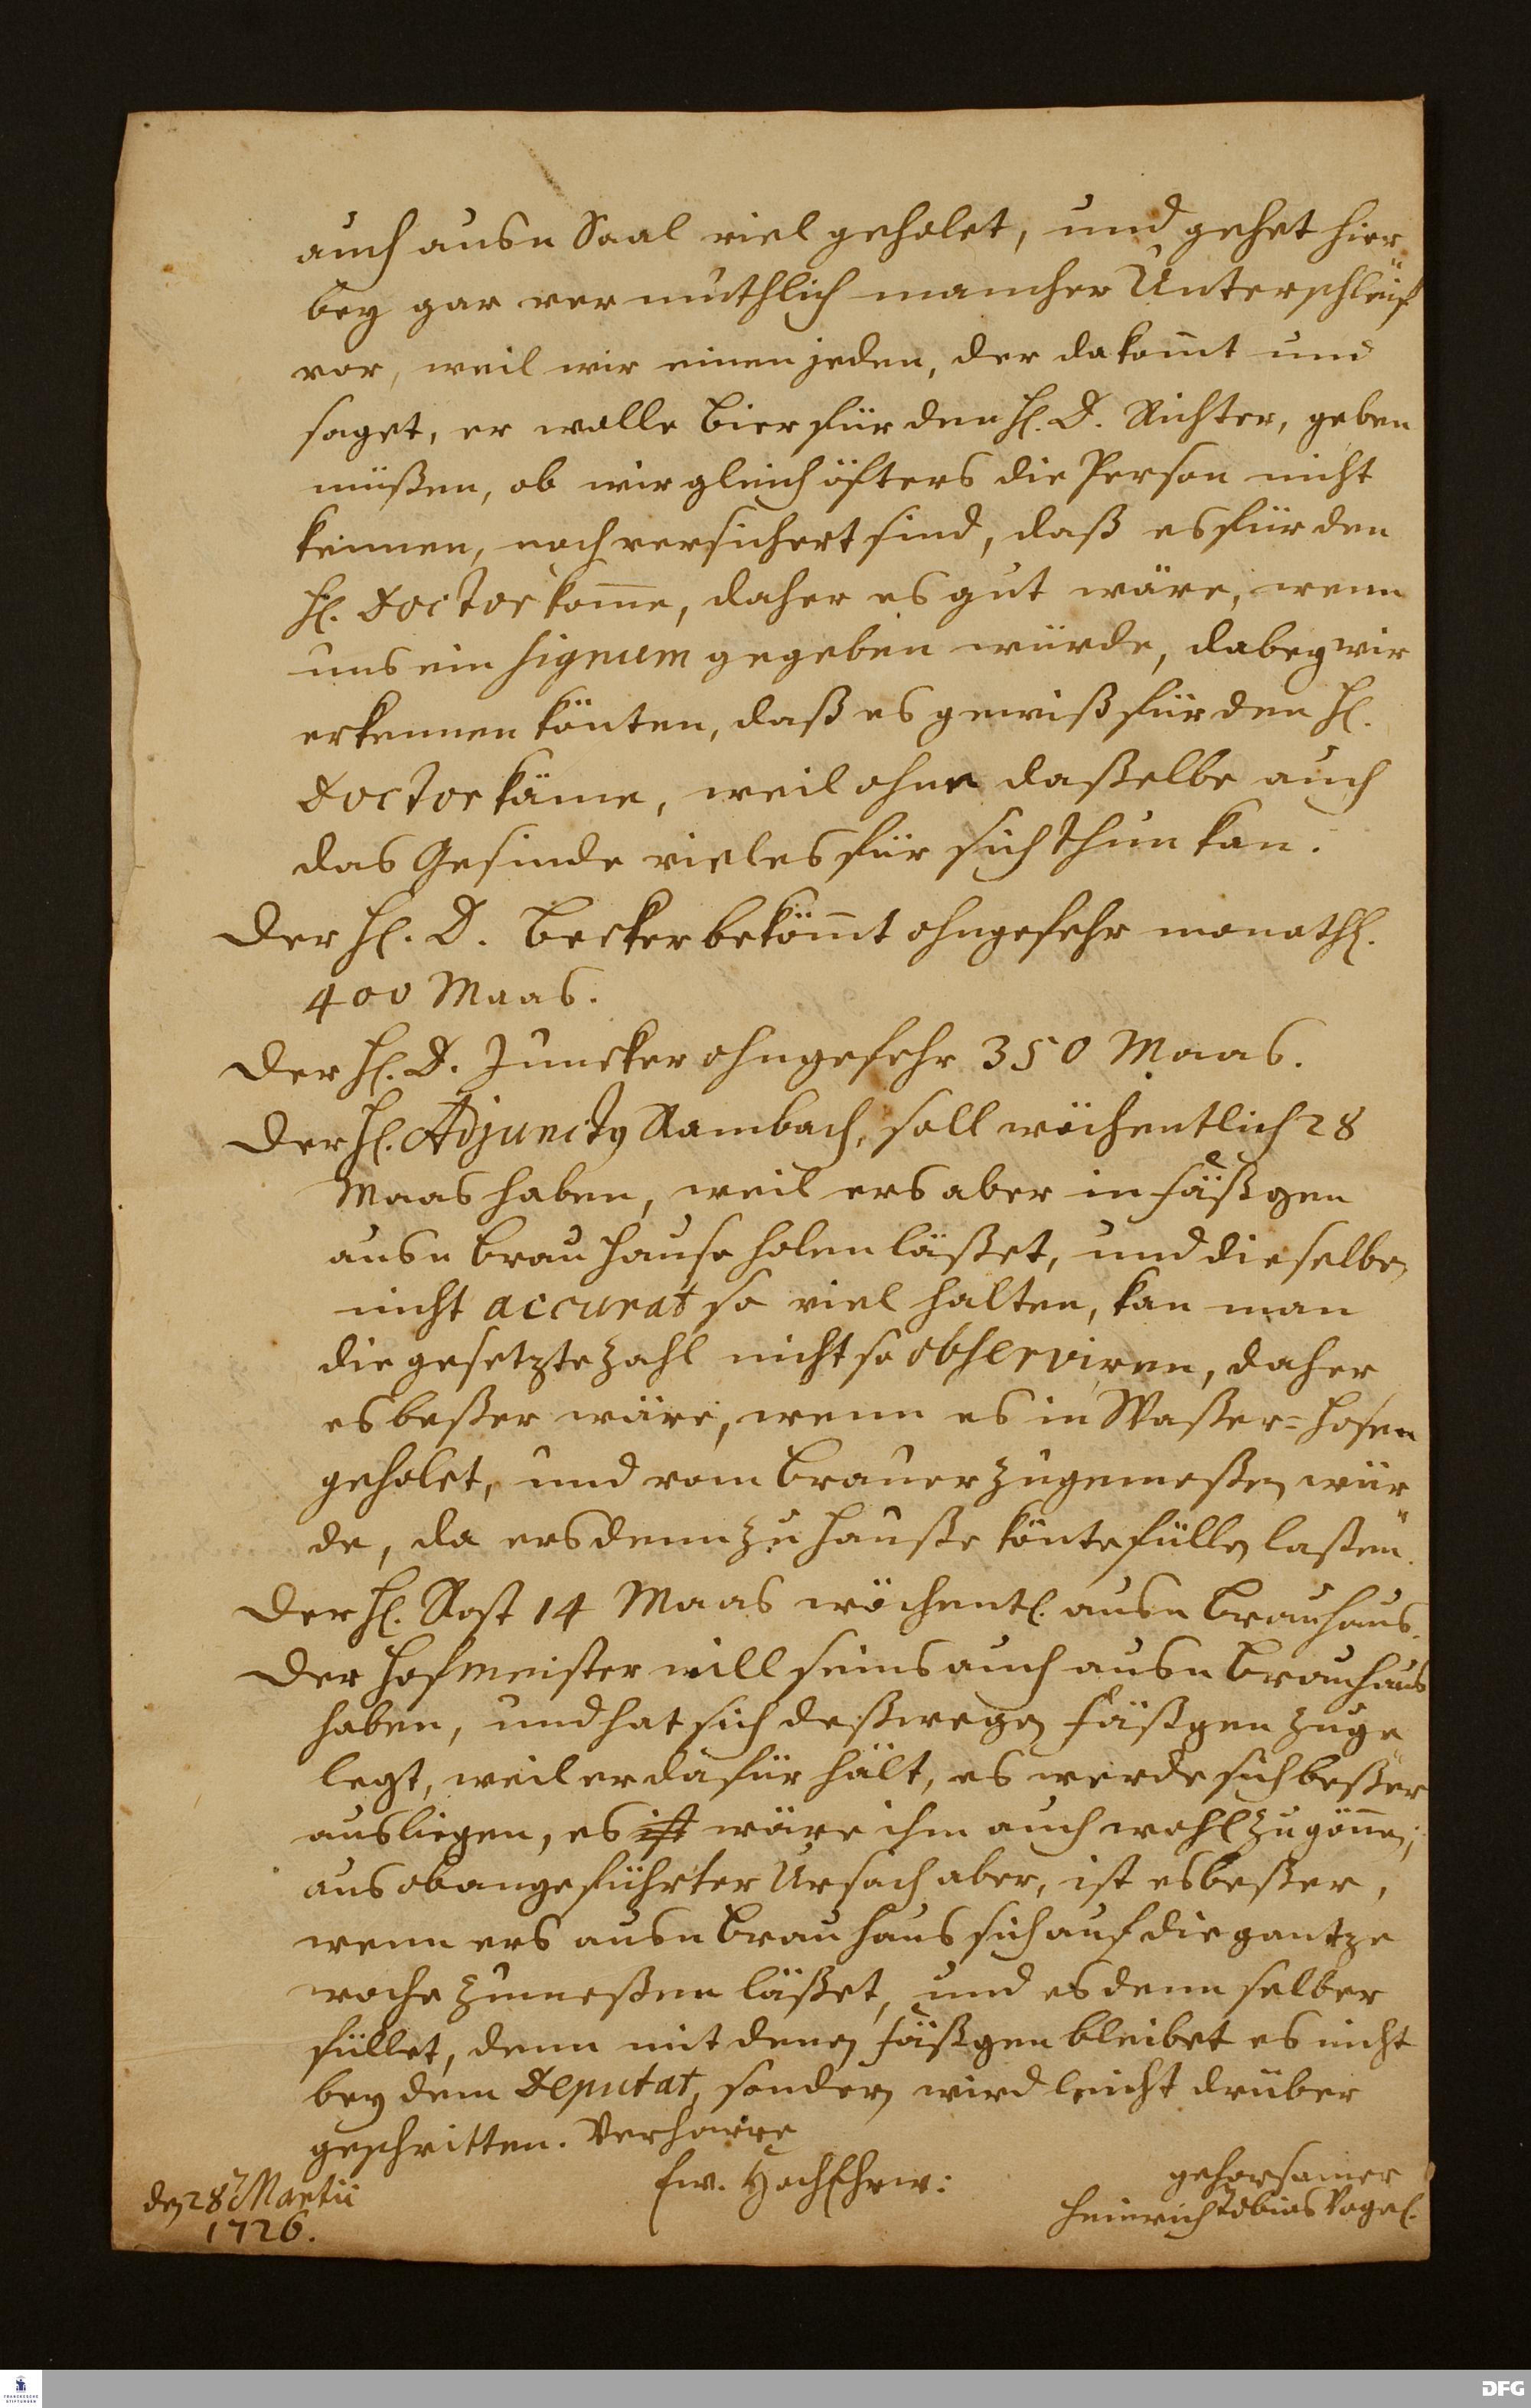 auch ausn Saal viel geholet, und gehet hier
bey gar vermuthlich mancher Unterschleif
vor, weil wir einen jeden, der da kom̄t und
saget, er wolle Bier für den H. D. Richter, geben
müßen, ob wir gleich öfters die Person nicht
kennen, noch versichert sind, daß es für den
H. Doctor kom̄e, daher es gut wäre, wenn
uns ein signum gegeben würde, dabey wir
erkennen könten, daß es gewiß für den H.
Doctor käme, weil ohne daßelbe auch
das Gesinde vieles für sich thun kan.
Der H. D. Becker beköm̄t ohngefehr monathl.
400 Maas.
Der H. D. Juncker ohngefehr 350 Maas.
Der H. Adjunctus Rambach, soll wöchentlich 28
Maas haben, weil ers aber in fäßgen
ausn Brauhause holen läßet, und dieselben
nicht accurat so viel halten, kan man
die gesetzte Zahl nicht so observiren, daher
es beßer wäre, wenn es in Waßer-Hosen
geholet, und vom Brauer zugemeßen wür
de, da ers denn zu Hauße könte füllen laßen.
Der H. Rost 14 Maas wöchentl. ausn Brauhaus.
Der Hofmeister will seins auch ausn Brauhaus
haben, und hat sich deßwegen fäßgen zuge
legt, weil er dafür hält, es werde sich beßer
ausliegen, es ist wäre ihm auch wohl zu gön̄en;
aus obangeführter Ursach aber, ist es beßer,
wenn ers ausn Brauhaus sich auf die gantze
woche zumeßen läßet, und es denn selber
füllet, denn mit denen fäßgen bleibet es nicht
bey dem Deputat, sondern wird leicht drüber
geschritten. Verharre
Ew. HochEhrw:
gehorsamer
Heinrich Tobias Vogel.
den 28 Martii
1726.
FRANCKESCHE
STIFTUNGEN
DFG